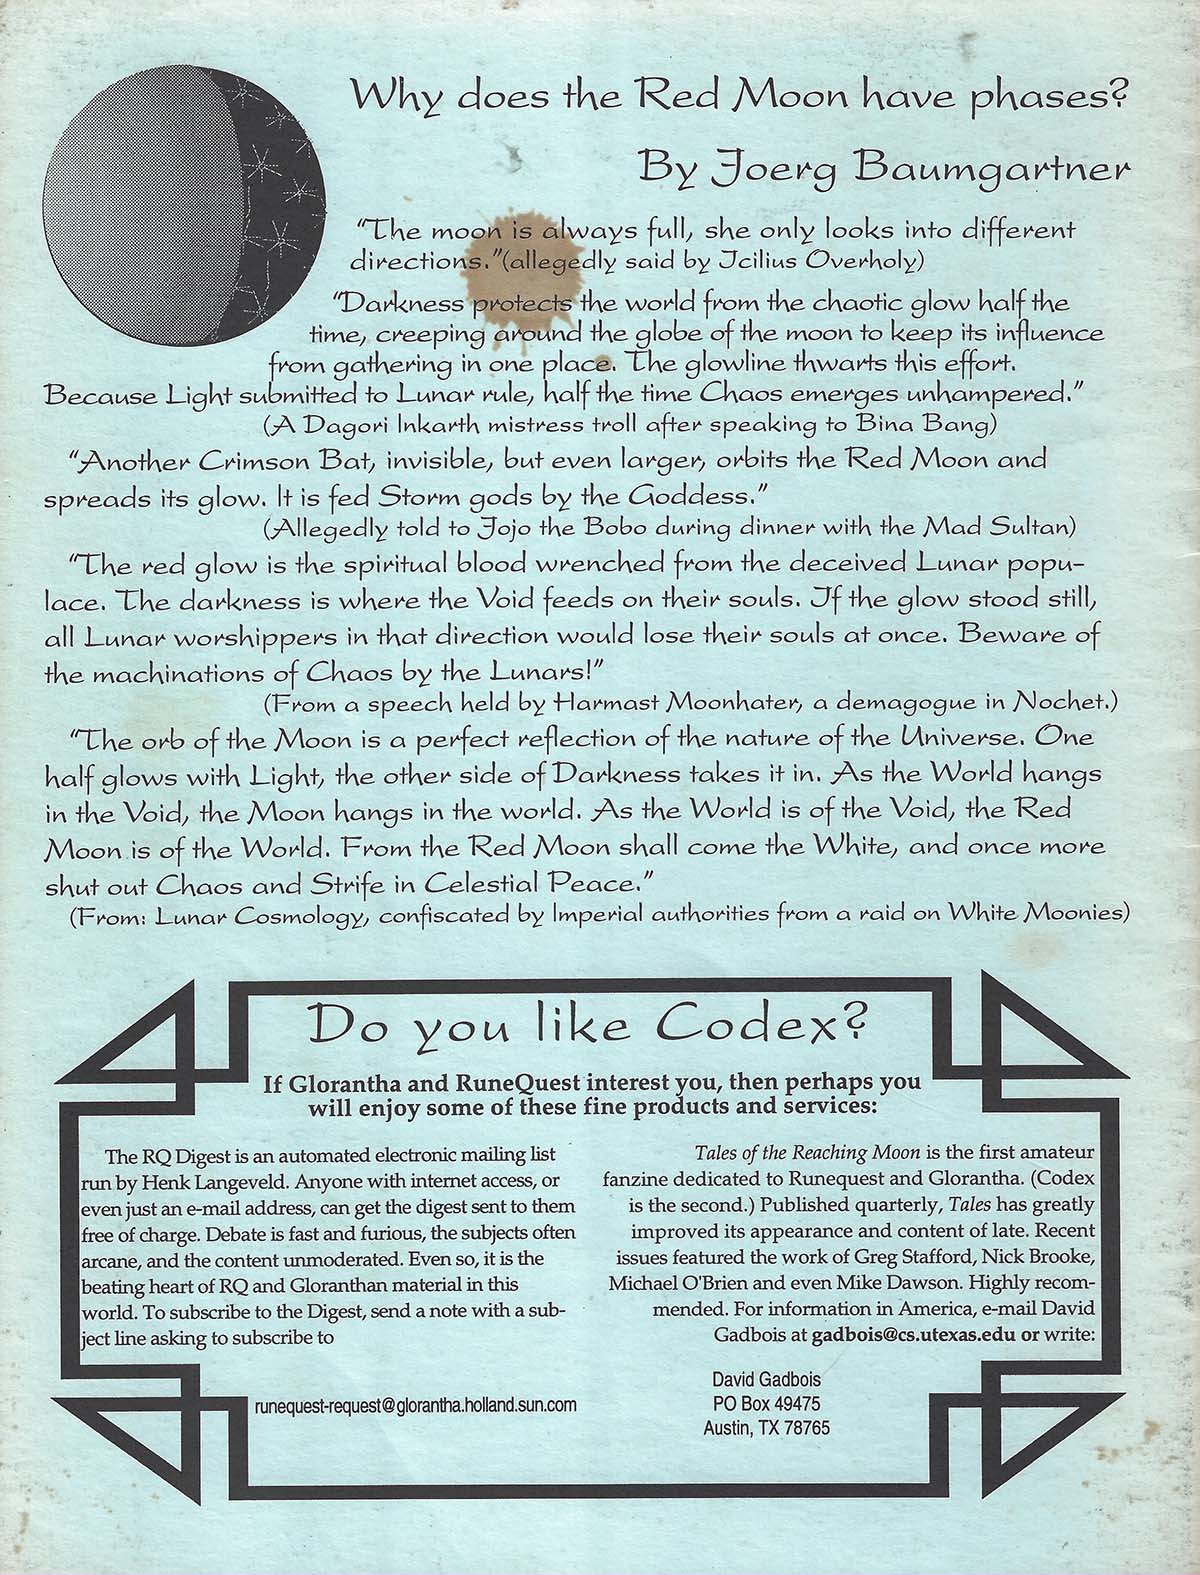 Why does the Red Moon have phases?
By Joerg Baumgartner
“The moon is always full, she only looks into different
directions.”(allegedly said by Icilius Overholy)
“Darkness protects the world from the chaotic glow half the
time, creeping around the globe of the moon to keep its influence
from gathering in one place. The glowline thwarts this effort.
Because Light submitted to Lunar rule, half the time Chaos emerges unhampered.”
(A Dagori Inkarth mistress troll after speaking to Bina Bang)
“Another Crimson Bat, invisible, but even larger, orbits the Red Moon and
spreads its glow. It is fed Storm gods by the Goddess.”
(Allegedly told to Jojo the Bobo during dinner with the Mad Sultan)
“The red glow is the spiritual blood wrenched from the deceived Lunar popu-
lace. The darkness is where the Void feeds on their souls. If the glow stood still,
all Lunar worshippers in that direction would lose their souls at once. Beware of
the machinations of Chaos by the Lunars!”
(From a speech held by Harmast Moonhater, a demagogue in Nochet.)
“The orb of the Moon is a perfect reflection of the nature of the Universe. One
half glows with Light, the other side of Darkness takes it in. As the World hangs
in the Void, the Moon hangs in the world. As the World is of the Void, the Red
Moon is of the World. From the Red Moon shall come the White, and once more
shut out Chaos and Strife in Celestial Peace.”
(From: Lunar Cosmology, confiscated by Imperial authorities from a raid on White Moonies)
Do you like Codex?
If Glorantha and RuneQuest interest you, then perhaps you
will enjoy some of these fine products and services:
The RQ Digest is an automated electronic mailing list
run by Henk Langeveld. Anyone with internet access, or
even just an e-mail address, can get the digest sent to them
free of charge. Debate is fast and furious, the subjects often
arcane, and the content unmoderated. Even so, it is the
beating heart of RQ and Gloranthan material in this
world. To subscribe to the Digest, send a note with a sub-
ject line asking to subscribe to
runequest-request@glorantha.holland.sun.com
Tales of the Reaching Moon is the first amateur
fanzine dedicated to Runequest and Glorantha. (Codex
is the second.) Published quarterly, Tales has greatly
improved its appearance and content of late. Recent
issues featured the work of Greg Stafford, Nick Brooke,
Michael O'Brien and even Mike Dawson. Highly recom-
mended. For information in America, e-mail David
Gadbois at gadbois@cs.utexas.edu or write:
David Gadbois
PO Box 49475
Austin, TX 78765